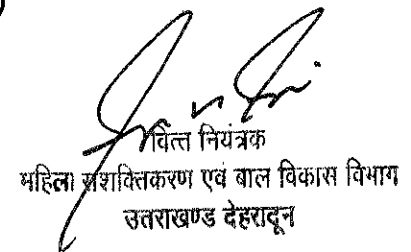 वित्त नियंत्रक
महिला सशक्तिकरण एवं बाल विकास विभाग
उतराखण्ड देहरादून